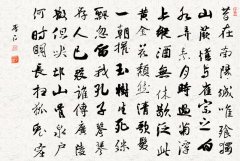 昔在南陽城唯餐獨
山蕨憶與崔宗之白
水弄素月時過菊潭
上縱酒無休歇泛此
黃金花頹然清歌發
一朝摧玉樹生死殊
飄忽留我孔子琴琴
存人已歿誰傳廣陵
散但哭邙山骨泉戶
何時明長掃狐兔窟